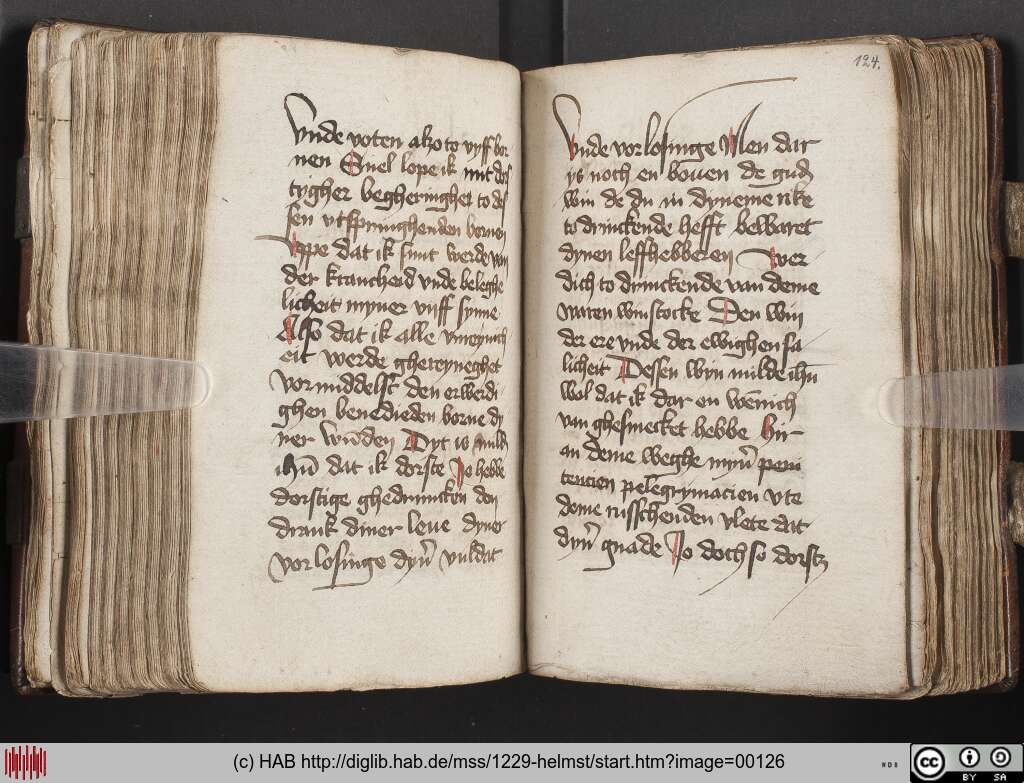 Vnde voten also to vyff bor
nen Snel lope ik mit dors
tygher begheringhe to des
sen vtsprinighenden bornen
Vppe dat ik sunt werde von
der krancheid vnde beleghe
licheit myner vyff synne
Also dat ik alle vnreynich
eit werde ghereyneghet
vormiddelst den erwerdi
ghen benedieden borne dy
ner wunden Dyt is milde
ihesu dat ik dorste Jo hebbe
dorstige ghedruncken den
drank diner leue dyner
vorlosinge dyner vuldat
124.
Vnde vorlosinge Men dar
ys noch en bouen de gude
win de du in dyneme rike
to drinckende hefft bewaret
dynen leffhebberen wer
dich to drinckende van deme
waren winstocke Den win
der ere vnde der ewighen sa
licheit Dessen wyn milde ihesu
wol dat ik dar en wenich
van ghesmecket hebbe hir
an deme weghe myner peni
tencien pelegrymacien vte
deme russchenden vlete dat
dyner gnade Jo doch so dorstz
(c) HAB http://diglib.hab.de/mss/1229-helmst/start.htm?image=00126
WDB
cc
BY SA